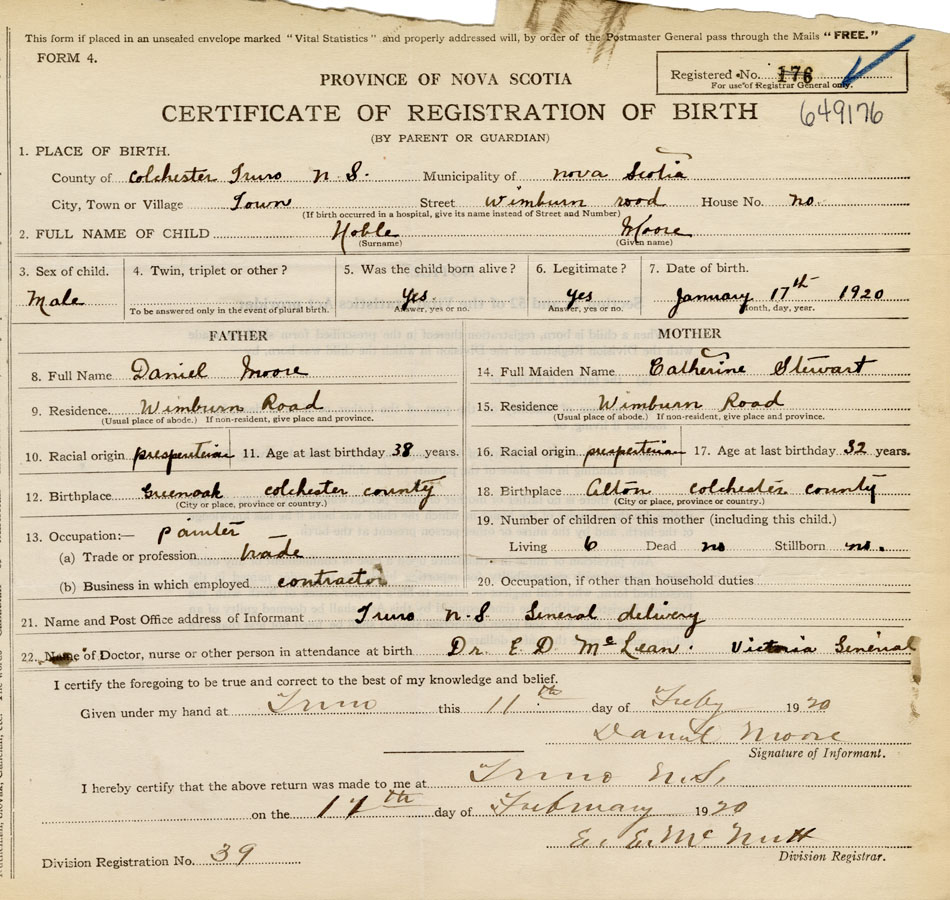 This form if placed in an unsealed envelope marked "Vital Statistics" and properly addressed will, by order of the Postmaster General pass through the Mails "FREE."
FORM 4.
Registered No. 176
For use of Registrar General only.
PROVINCE OF NOVA SCOTIA
CERTIFICATE OF REGISTRATION OF BIRTH
649176
(BY PARENT OR GUARDIAN)
1. PLACE OF BIRTH.
County of Colchester Truro N.S. Municipality of Nova Scotia
City, Town or Village Town Street Wimburn road House No. no.
(If birth occurred in a hospital, give its name instead of Street and Number)
2. FULL NAME OF CHILD Noble Moore
(Surname) (Given name)
3. Sex of child. 4. Twin, triplet or other? 5. Was the child born alive? 6. Legitimate? 7. Date of birth.
Male Yes Yes January 17th 1920
To be answered only in the event of plural birth. Answer, yes or no. Answer, yes or no. Month, day, year.
FATHER MOTHER
8. Full Name Daniel Moore 14. Full Maiden Name Catherine Stewart
9. Residence. Wimburn Road 15. Residence Wimburn Road
(Usual place of abode.) If non-resident, give place and province. (Usual place of abode.) If non-resident, give place and province.
10. Racial origin presperterian 11. Age at last birthday 38 years. 16. Racial origin presperterian 17. Age at last birthday 32 years.
12. Birthplace Greenoak colchester county 18. Birthplace Alton colchester county
(City or place, province or country.) (City or place, province or country.)
13. Occupation:— painter 19. Number of children of this mother (including this child.)
(a) Trade or profession trade Living 6 Dead no Stillborn no.
(b) Business in which employed contractor 20. Occupation, if other than household duties
21. Name and Post Office address of Informant Truro N.S. General delivery
22. Name of Doctor, nurse or other person in attendance at birth Dr. E. D. McLean. Victoria General
I certify the foregoing to be true and correct to the best of my knowledge and belief.
Given under my hand at Truro this 11th day of Feby 1920
Daniel Moore
Signature of Informant.
I hereby certify that the above return was made to me at Truro N.S.
on the 17th day of February 1920
E. E. McNutt
Division Registration No. 39 Division Registrar.